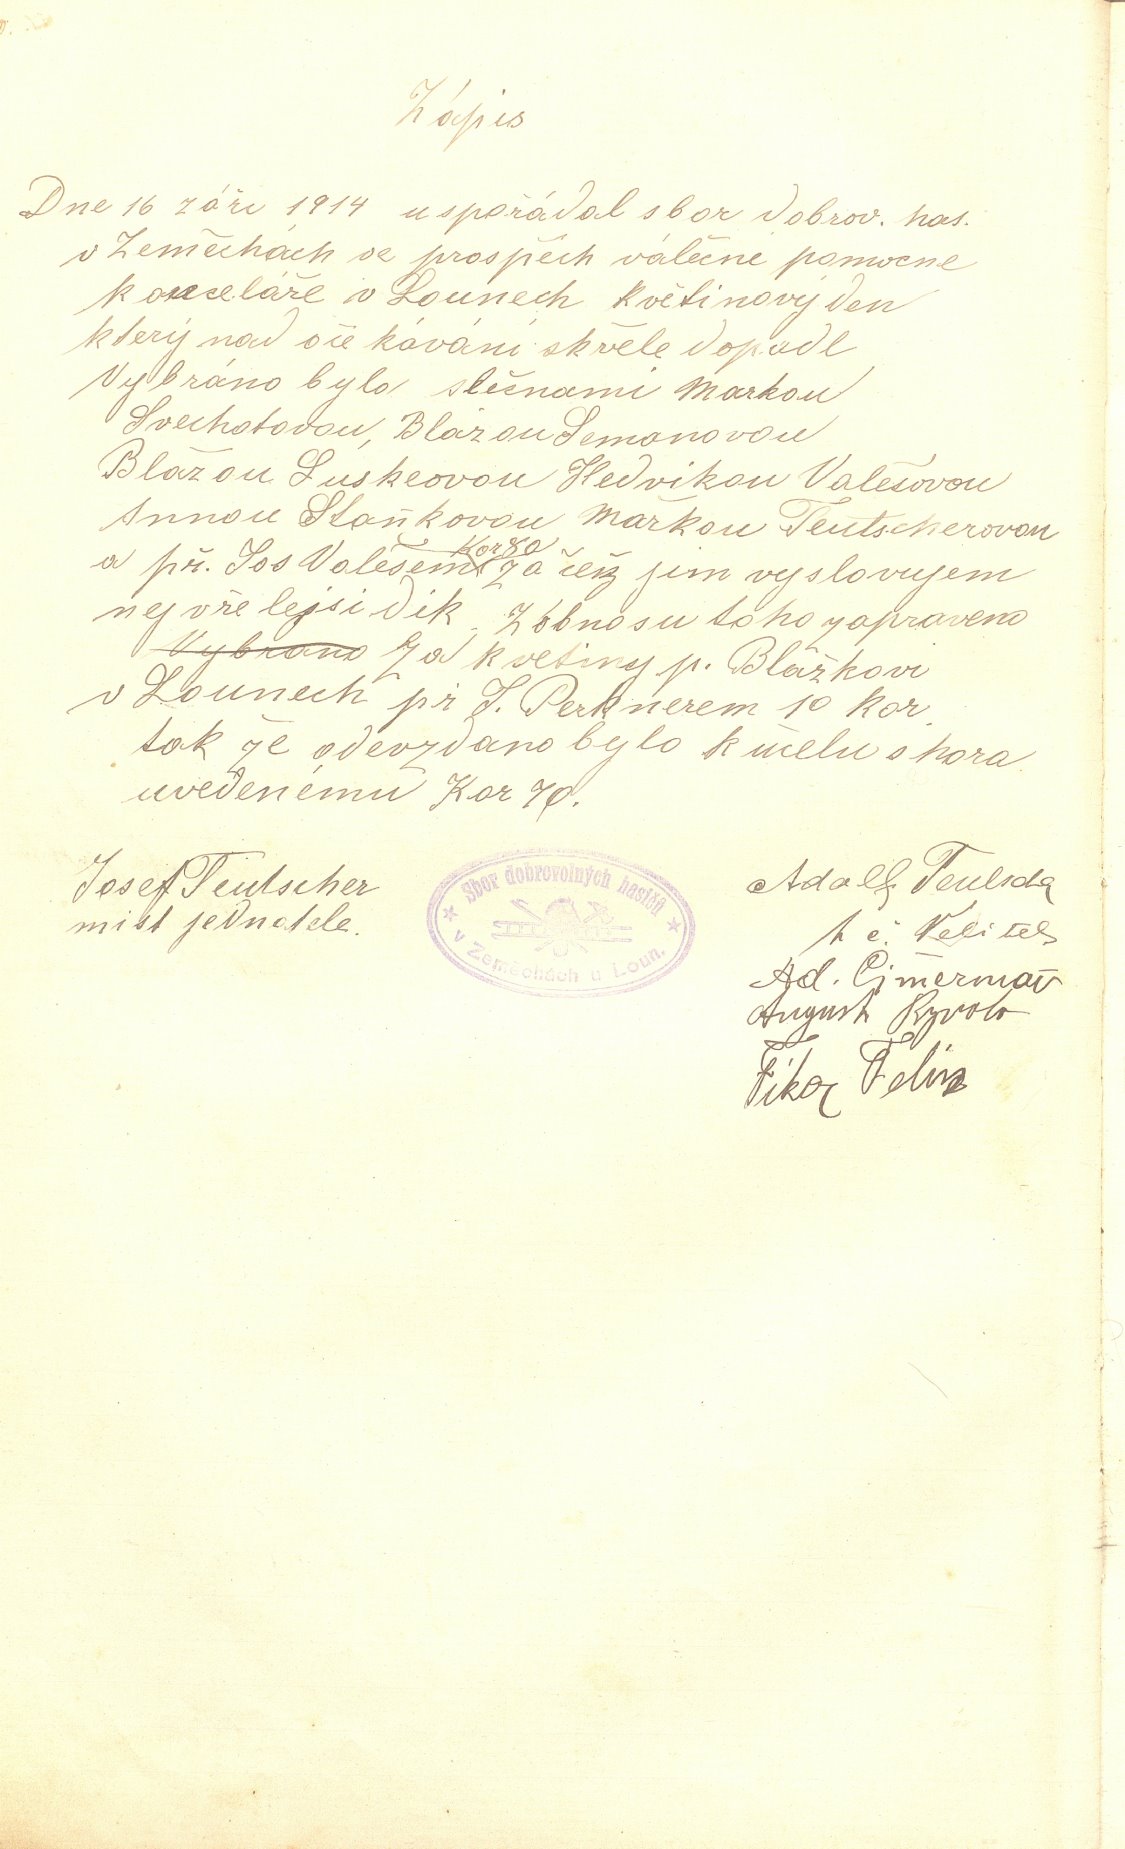 Zápis
Dne 16 září 1914 uspořádal sbor dobrov. has.
v Zeměchách ve prospěch válečné pomocne
kanceláře v Lounech Květinový den
který nad oče kávání skvěle dopadl
Vybráno bylo slečnami Markou
Svechotovou, Blázou Semanovou
Blážou Luskeovou Hedvikou Valešovou
Annou Staňkovou Mařkou Teutscherovou
a př. Jos Valešem Kor 80 za čež jim vyslovujem
nejvřelejsi dík. Z obnosu toho zapraveno
Vybrano za květiny p. Blážkovi
v Lounech př J. Perknerem 10 kor.
tak že odevzdano bylo k učelu shora
uvedenému Kor 70.
Josef Teutscher
mist jednatele.
Sbor dobrovolných hasičů
v Zeměchách u Loun.
Adolf
t č. Velitel
Ad. Cimermař
August
Fikar